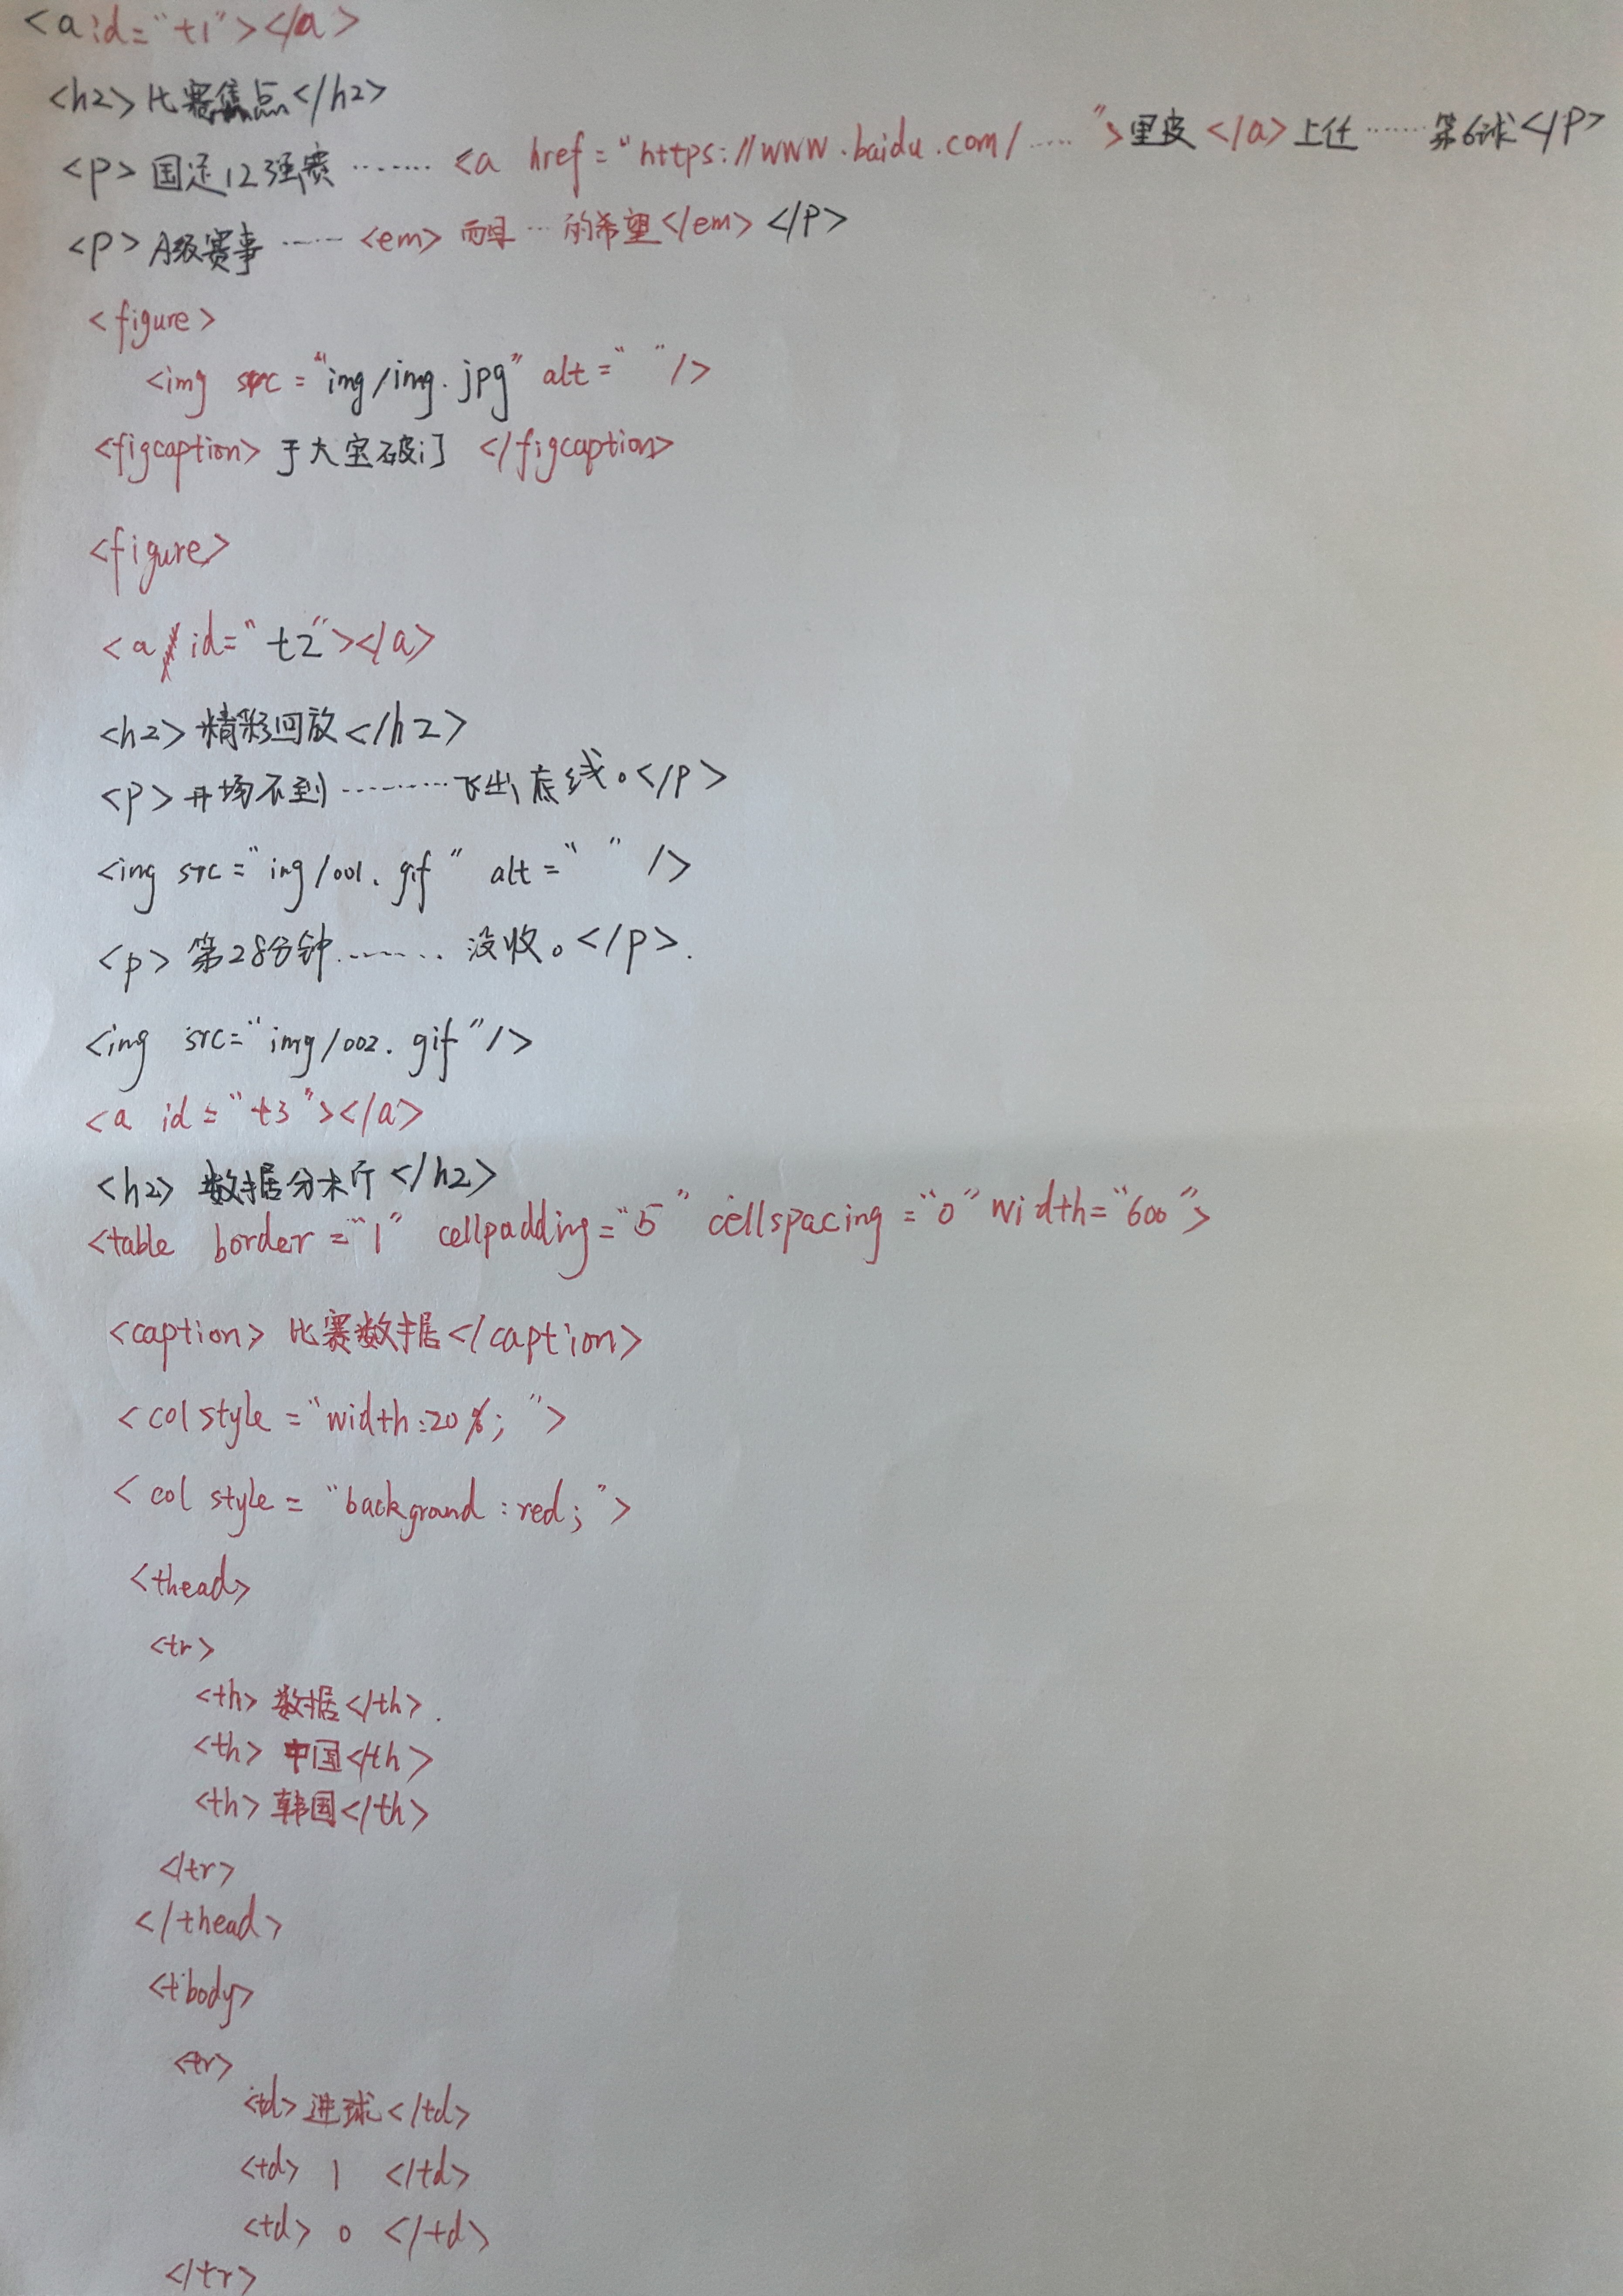 <a id="t1"></a>
<h2>比赛焦点</h2>
<p>国足12强赛……<a href="https://www.baidu.com/……">里皮</a>上任……第6球</p>
<p>A级赛事……<em>而且…的希望</em></p>
<figure>
<img src="img/img.jpg" alt=" "/>
<figcaption>于大宝破门</figcaption>
<figure>
<a id="t2"></a>
<h2>精彩回放</h2>
<p>开场不到………飞出底线。</p>
<img src="img/001.gif" alt=" "/>
<p>第28分钟………没收。</p>.
<img src="img/002.gif"/>
<a id="t3"></a>
<h2>数据分析</h2>
<table border="1" cellpadding="5" cellspacing="0" width="600">
<caption>比赛数据</caption>
<col style="width:20%; ">
<col style="background:red;">
<thead>
<tr>
<th>数据</th>.
<th>中国</th>
<th>韩国</th>
</tr>
</thead>
<tbody>
<tr>
<td>进球</td>
<td>1</td>
<td>0</td>
</tr>